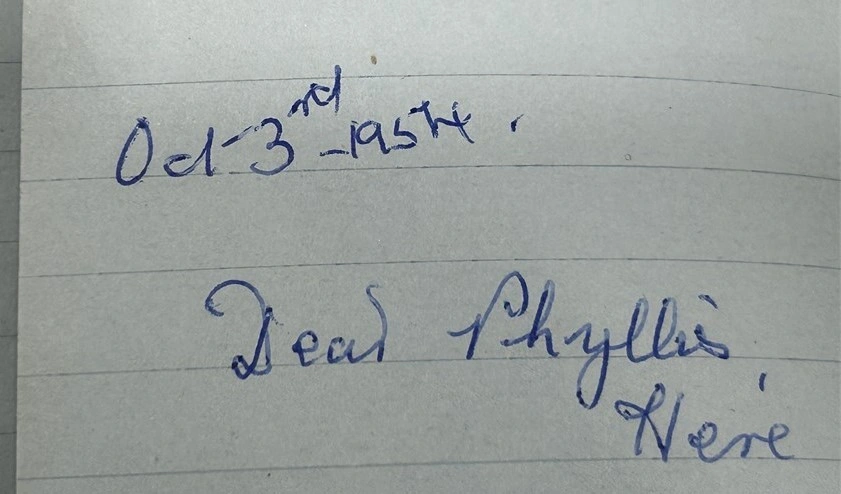 Oct 3rd - 1954.
Dear Phyllis,
Here